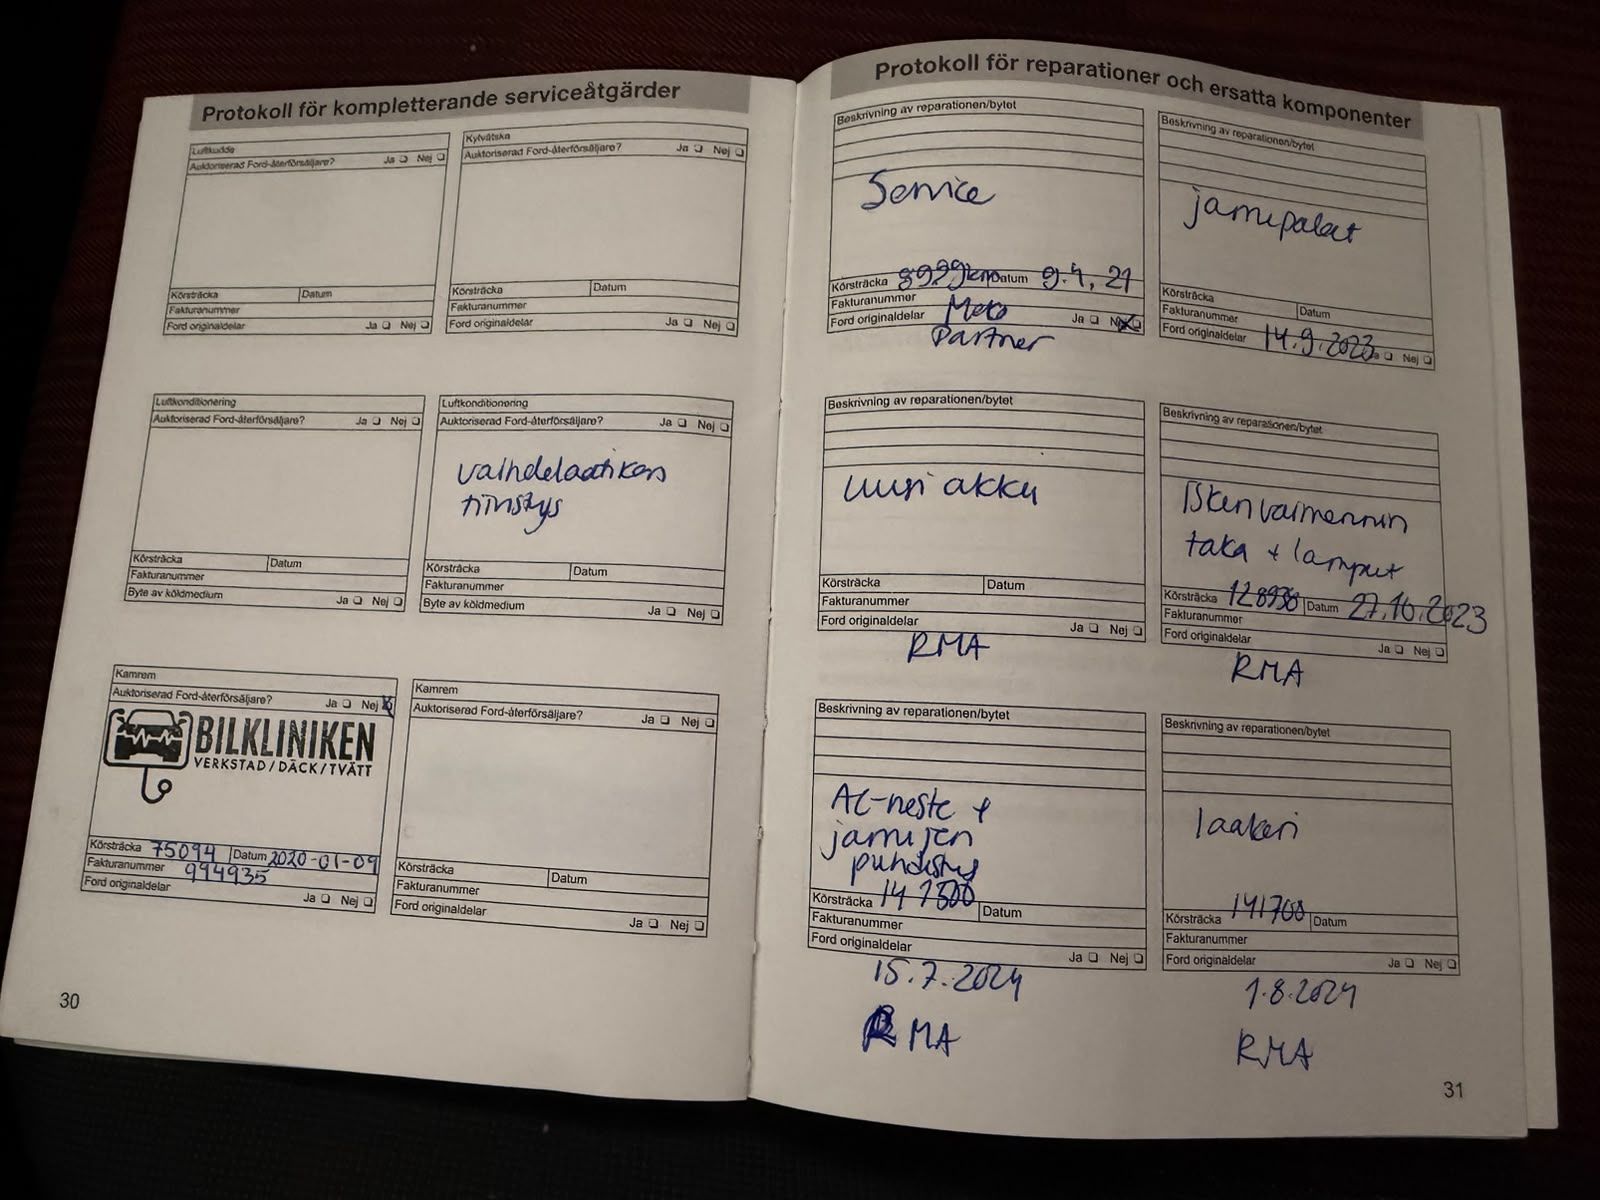 Protokoll för kompletterande serviceåtgärder
Luftkudde
Auktoriserad Ford-återförsäljare? Ja Nej
Körsträcka Datum
Fakturanummer
Ford originaldelar Ja Nej
Kylvätska
Auktoriserad Ford-återförsäljare? Ja Nej
Körsträcka Datum
Fakturanummer
Ford originaldelar Ja Nej
Luftkonditionering
Auktoriserad Ford-återförsäljare? Ja Nej
Körsträcka Datum
Fakturanummer
Byte av köldmedium Ja Nej
Luftkonditionering
Auktoriserad Ford-återförsäljare? Ja Nej
vaihdelaatikon
tiivistys
Körsträcka Datum
Fakturanummer
Byte av köldmedium Ja Nej
Kamrem
Auktoriserad Ford-återförsäljare? Ja Nej
BILKLINIKEN
VERKSTAD/DÄCK/TVÄTT
Körsträcka 75094 Datum 2020-01-09
Fakturanummer 994935
Ford originaldelar Ja Nej
Kamrem
Auktoriserad Ford-återförsäljare? Ja Nej
Körsträcka Datum
Fakturanummer
Ford originaldelar Ja Nej
30
Protokoll för reparationer och ersatta komponenter
Beskrivning av reparationen/bytet
Service
Körsträcka Datum 9.4,21
Fakturanummer
Ford originaldelar Meko Ja Nej
Partner
Beskrivning av reparationen/bytet
jarrupalat
Körsträcka Datum
Fakturanummer
Ford originaldelar 14.9.2023 Ja Nej
Beskrivning av reparationen/bytet
uusi akku
Körsträcka Datum
Fakturanummer
Ford originaldelar Ja Nej
RMA
Beskrivning av reparationen/bytet
Iskenvaimennin
taka + lamput
Körsträcka 128938 Datum 27.10.2023
Fakturanummer
Ford originaldelar Ja Nej
RMA
Beskrivning av reparationen/bytet
AC-neste +
jarrujen
puhdistus
Körsträcka Datum
Fakturanummer
Ford originaldelar Ja Nej
15.7.2024
RMA
Beskrivning av reparationen/bytet
laakeri
Körsträcka 141700 Datum
Fakturanummer
Ford originaldelar Ja Nej
1.8.2024
RMA
31